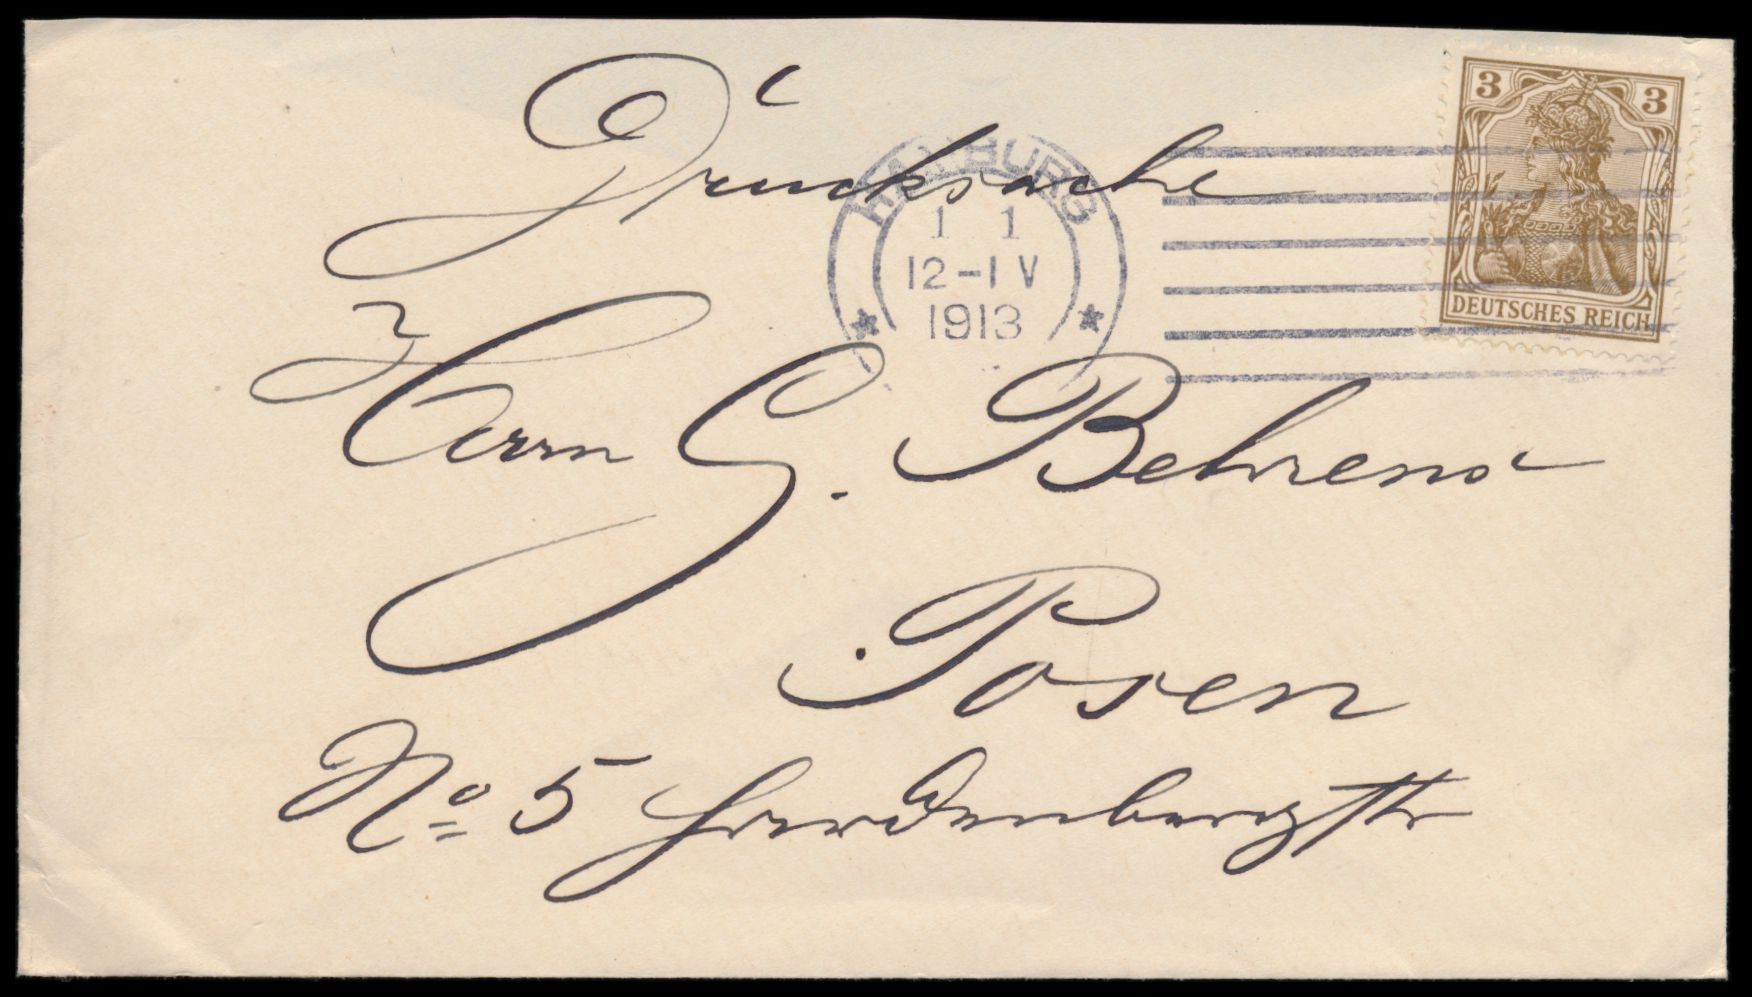 Drucksache
3 3
DEUTSCHES REICH
HAMBURG
1 1
12-1 V
1913
Herrn G. Behrend
Posen
No 5 Hardenbergstr